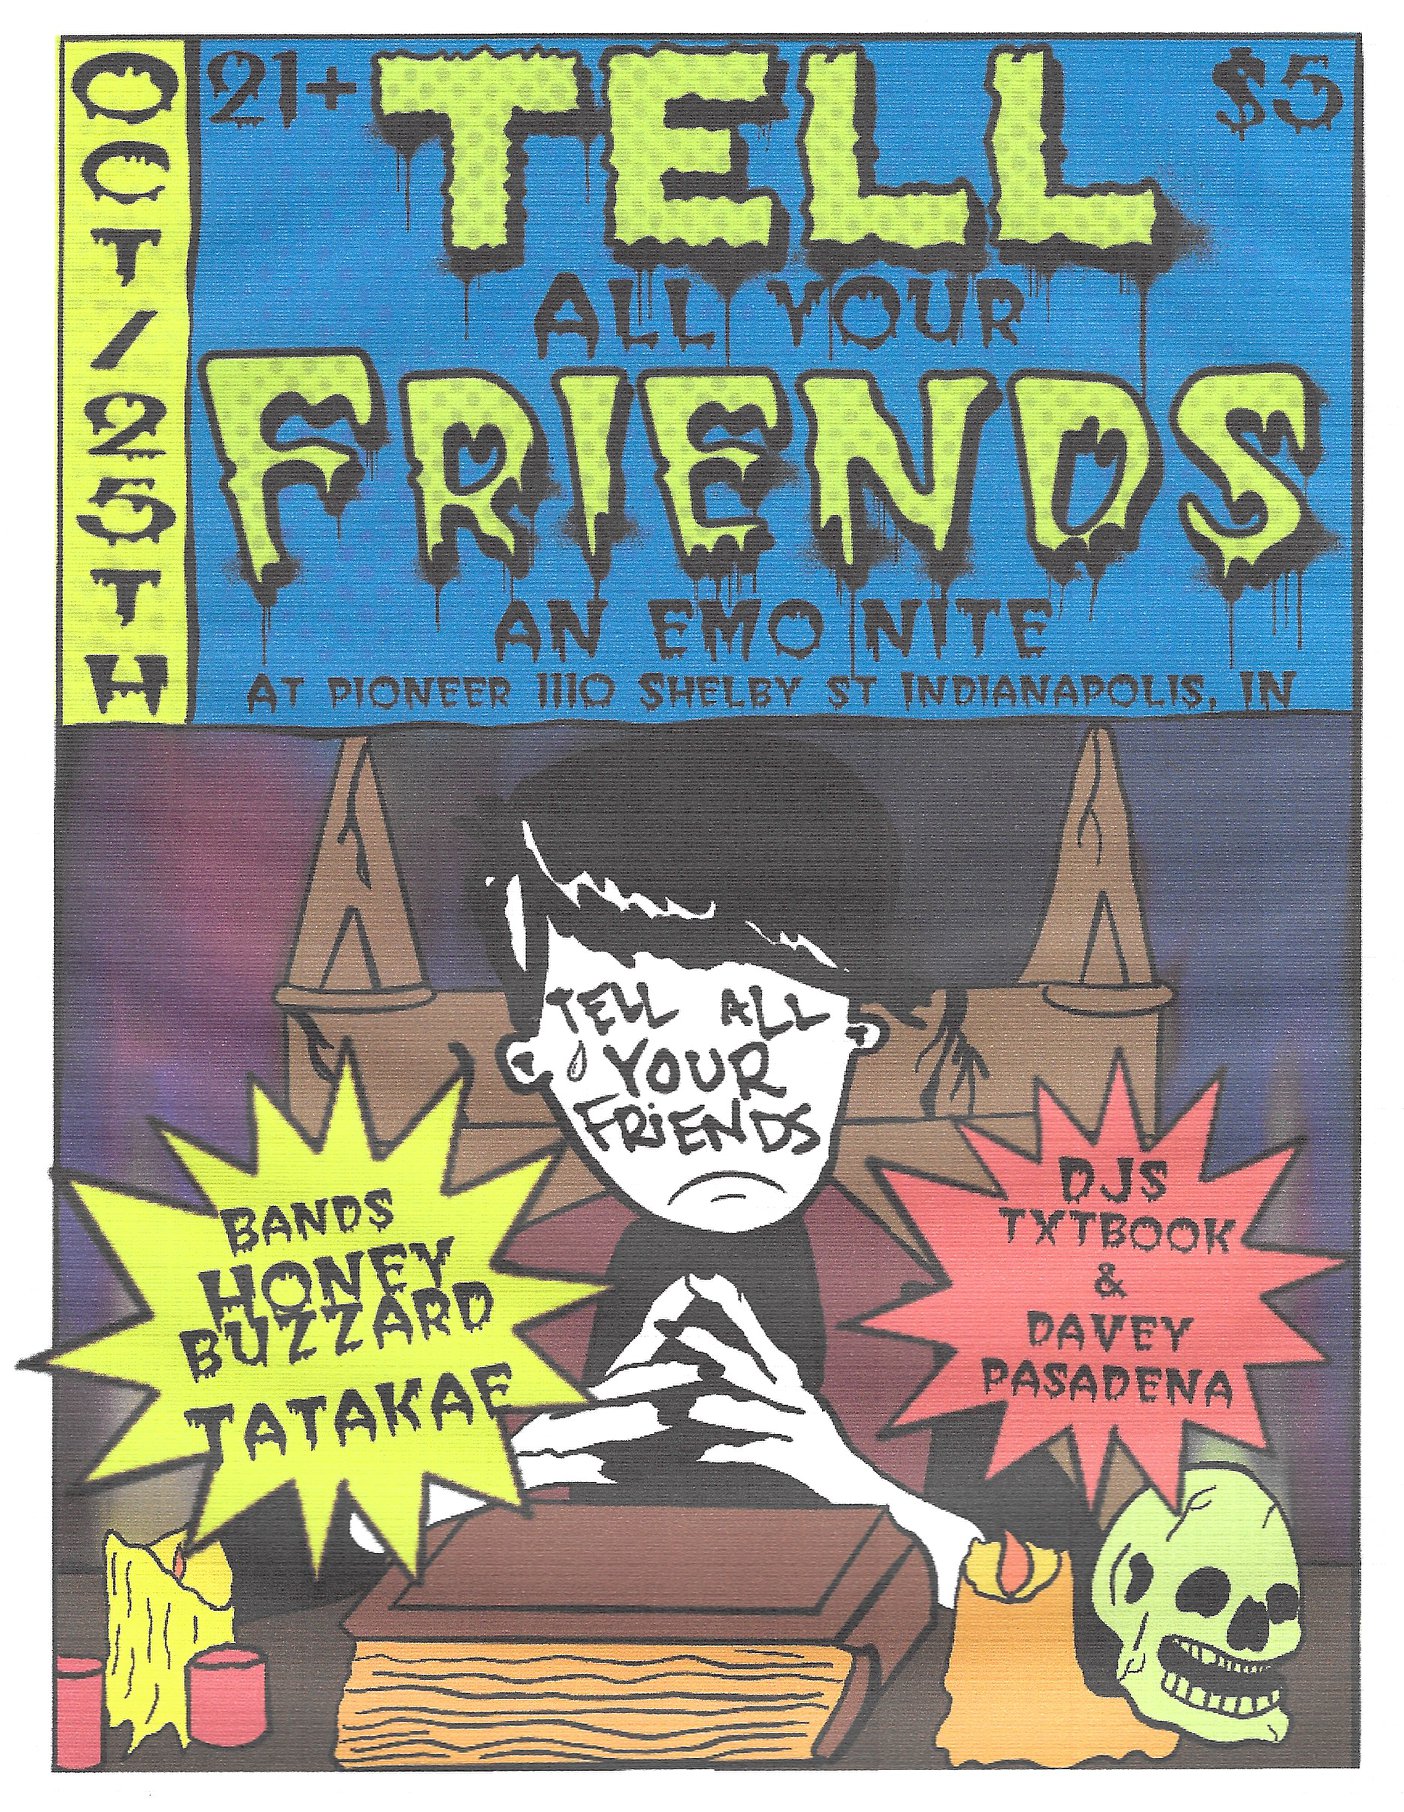 OCT/25TH
21+
$5
TELL
ALL YOUR
FRIENDS
AN EMO NITE
AT PIONEER 1110 SHELBY ST INDIANAPOLIS, IN
TELL ALL
YOUR
FRiENDS
BANDS
HONEY
BUZZARD
TATAKAE
DJS
TXTBOOK
&
DAVEY
PASADENA